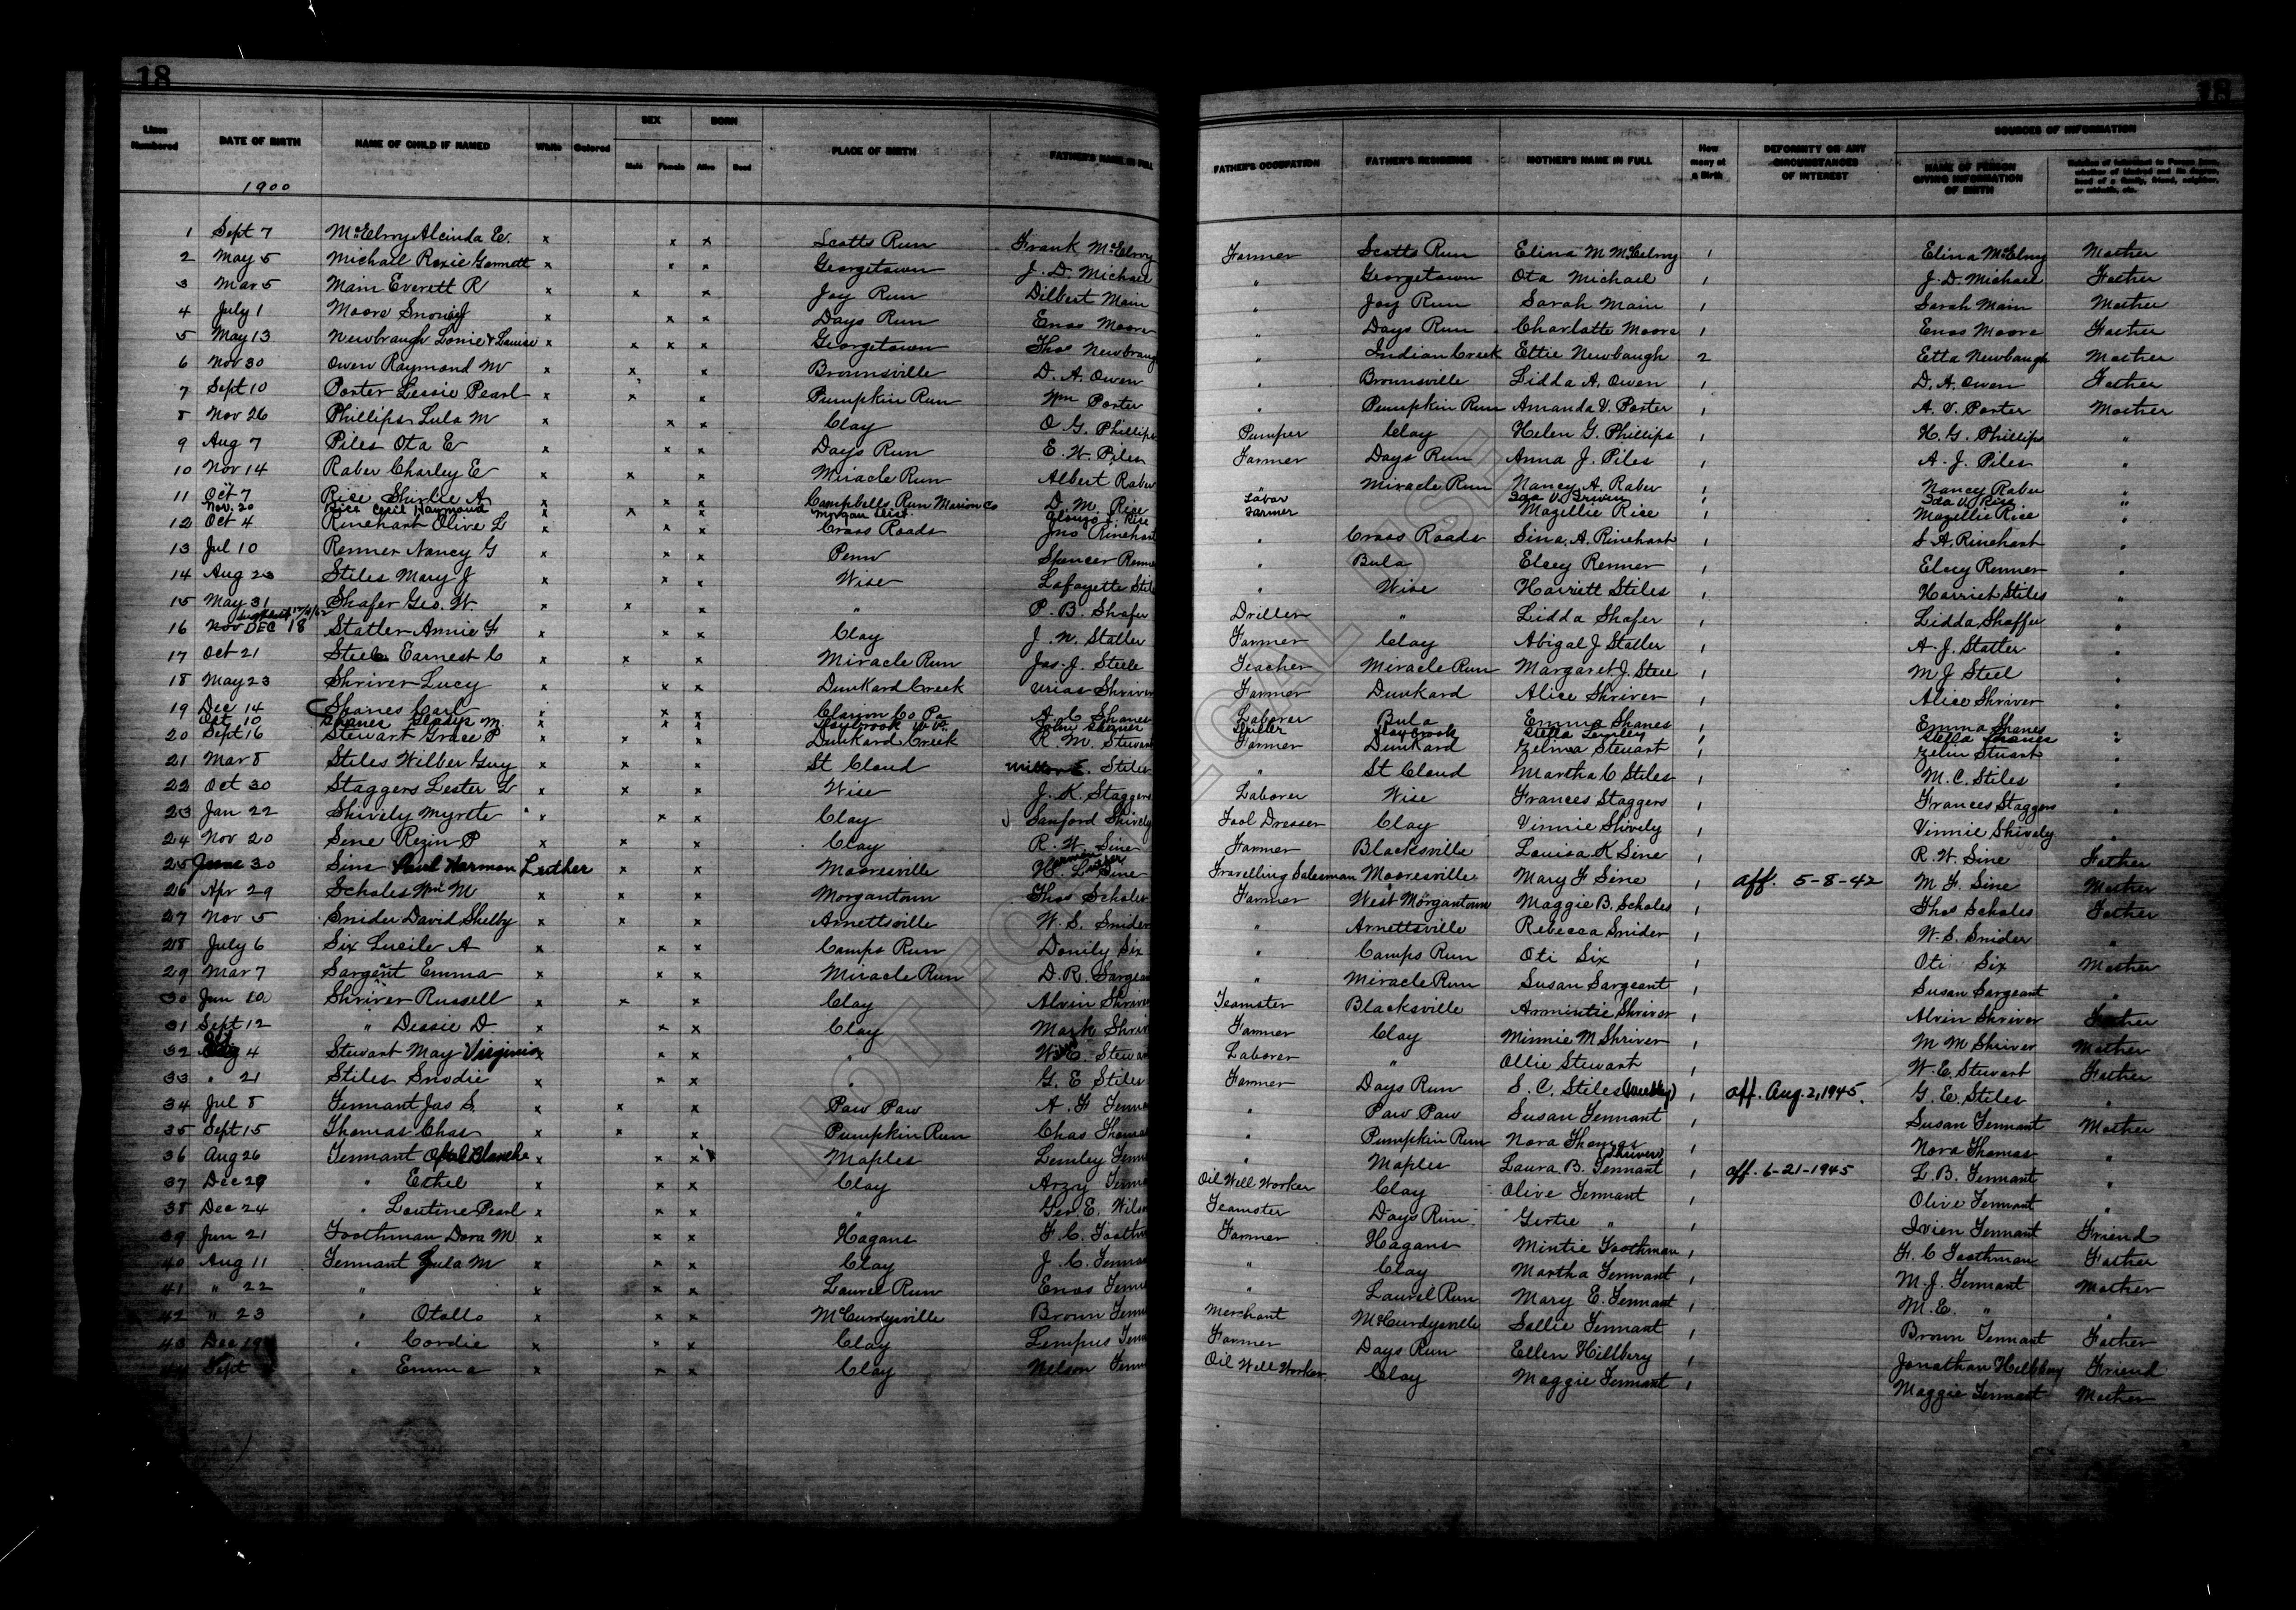 18
18
Lines Numbered
DATE OF BIRTH
NAME OF CHILD IF NAMED
White
Colored
SEX
Male
Female
BORN
Alive
Dead
PLACE OF BIRTH
FATHER'S NAME IN FULL
FATHER'S OCCUPATION
FATHER'S RESIDENCE
MOTHER'S NAME IN FULL
How many at a Birth
DEFORMITY OR ANY CIRCUMSTANCES OF INTEREST
SOURCES OF INFORMATION
NAME OF PERSON GIVING INFORMATION OF BIRTH
1900
1 Sept 7 McElroy Alcinda E. x x x Scotts Run Frank McElroy Farmer Scotts Run Elina M McElroy 1 Elina McElroy Mother
2 May 5 Michael Roxie Garnett x x x Georgetown J. D. Michael " Georgetown Ota Michael 1 J. D. Michael Father
3 Mar 5 Main Everett R x x x Joy Run Dilbert Main " Joy Run Sarah Main 1 Sarah Main Mother
4 July 1 Moore x x x Days Run Enos Moore " Days Run Charlotte Moore 1 Enos Moore Father
5 May 13 Newbraugh Lonie & Louise x x x x Georgetown Thos Newbraug " Indian Creek Ettie Newbaugh 2 Etta Newbaugh Mother
6 Nov 30 Owen Raymond M x x x Brownsville D. A. Owen " Brownsville Lidda A. Owen 1 D. A. Owen Father
7 Sept 10 Porter Lessie Pearl x x x Pumpkin Run Wm Porter " Pumpkin Run Amanda V. Porter 1 A. V. Porter Mother
8 Nov 26 Phillips Lula M x x x Clay O. G. Phillips Pumper Clay Helen G. Phillips 1 H. G. Phillips "
9 Aug 7 Piles Ota E x x x Days Run E. W. Piles Farmer Days Run Anna J. Piles 1 A. J. Piles "
10 Nov 14 Raber Charley E x x x Miracle Run Albert Raber " Miracle Run Nancy A. Raber 1 Nancy Raber "
11 Oct 7 Rice Shirlie A x x x Campbells Run Marion Co D. M. Rice Labor Ida V. 1 Ida V. Rice "
Nov. 20 Rice Cecil Raymond x x x Morgan Dist. Alonzo F. Rice Farmer Mazellie Rice 1 Mazellie Rice "
12 Oct 4 Rinehart Olive L x x x Cross Roads Jno Rinehart " Cross Roads Sina A. Rinehart 1 S. A. Rinehart "
13 Jul 10 Renner Nancy G x x x Penn Spencer Renne " Bula Elcey Renner 1 Elcey Renner "
14 Aug 23 Stiles Mary J x x x Wise Lafayette Stil " Wise Harriett Stiles 1 Harriet Stiles "
15 May 31 Shafer Geo. W. x x x " P. B. Shafer Driller " Lidda Shafer 1 Lidda Shaffer "
16 Nov DEC 18 Statler Annie F x x x Clay J. N. Statler Farmer Clay Abigal J Statler 1 A. J. Statler "
17 Oct 21 Steele Earnest C x x x Miracle Run Jas. J. Steele Teacher Miracle Run Margaret J. Steel 1 M J Steel "
18 May 23 Shriver Lucy x x x Dunkard Creek Urias Shriver Farmer Dunkard Alice Shriver 1 Alice Shriver "
19 Dec 14 Shanes Carl x x x Clarion Co Pa A. C Shanes Laborer Bula Emma Shanes 1 Emma Shanes "
Oct 10 Shanes Gladys M. x x x John Shanes Driller Stella Lemley 1 Stella Shanes "
20 Sept 16 Stewart Grace P x x x Dunkard Creek R. M. Stewart Farmer Dunkard Zelma Stewart 1 Zelm Stuart "
21 Mar 8 Stiles Wilber Guy x x x St Cloud Milton E. Stiles " St Cloud Martha C Stiles 1 M. C. Stiles "
22 Oct 30 Staggers Lester L x x x Wise J. K. Staggers Laborer Wise Frances Staggers 1 Frances Staggers "
23 Jan 22 Shively Myrtle x x x Clay Sanford Shively Tool Dresser Clay Vinnie Shively 1 Vinnie Shively "
24 Nov 20 Sine Rezin P x x x Clay R. W. Sine Farmer Blacksville Louisa K Sine 1 R. W. Sine Father
25 June 30 Sine Paul Harmon Luther x x Mooresville H. Sine Travelling Salesman Mooresville Mary F Sine 1 aff. 5-8-42 M F. Sine Mother
26 Apr 29 Scholes Wm M x x x Morgantown Thos Scholes Farmer West Morgantown Maggie B. Scholes 1 Thos Scholes Father
27 Nov 5 Snider David Shelby x x x Arnettsville W. S. Snider " Arnettsville Rebecca Snider 1 W. S. Snider "
28 July 6 Six Lucile A x x x Camps Run Donily Six " Camps Run Oti Six 1 Otis Six Mother
29 Mar 7 Sargent Emma x x x Miracle Run D. R. Sargean " Miracle Run Susan Sargeant 1 Susan Sargeant "
30 Jun 10 Shriver Russell x x x Clay Alvin Shriver Teamster Blacksville Armintie Shriver 1 Alvin Shriver Father
31 Sept 12 " Dessie D. x x x Clay Mark Shriv Farmer Clay Minnie M Shriver 1 M M Shriver Mother
32 4 Stewart May Virginia x x x " W. E. Stewar Laborer " Ollie Stewart 1 W. E. Stewart Father
33 " 21 Stiles Snodie x x x " G. E Stiles Farmer Days Run S. C. Stiles 1 aff. Aug. 2, 1945. G. E. Stiles "
34 Jul 8 Tennant Jas S. x x x Paw Paw A. F Tenna " Paw Paw Susan Tennant 1 Susan Tennant Mother
35 Sept 15 Thomas Chas x x x Pumpkin Run Chas Thomas " Pumpkin Run Nora Thomas 1 Nora Thomas "
36 Aug 26 Tennant Opal Blanche x x x Maples Lemley Tenna " Maples Laura B. (Shriver) Tennant 1 aff. 6-21-1945 L. B. Tennant "
37 Dec 29 " Ethel x x x Clay Arzy Tenna Oil Well Worker Clay Olive Tennant 1 Olive Tennant "
38 Dec 24 " Loutine Pearl x x x " Geo. E. Wilso Teamster Days Run Gertie " 1 Ivien Tennant Friend
39 Jun 21 Toothman Dora M x x x Hagans F. C. Toothm Farmer Hagans Mintie Toothman 1 F. C Toothman Father
40 Aug 11 Tennant Lula M x x x Clay J. C. Tennan " Clay Martha Tennant 1 M. J. Tennant Mother
41 " 22 " x x x Laurel Run Enos Tenna " Laurel Run Mary E. Tennant 1 M. E. " "
42 " 23 " Otallo x x x McCurdysville Brown Tenna Merchant McCurdysville Sallie Tennant 1 Brown Tennant Father
43 Dec 19 " Cordie x x x Clay Lempus Tenn Farmer Days Run Ellen Hillbery 1 Jonathan Hillbery Friend
44 Sept " Emma x x x Clay Nelson Tenna Oil Well Worker Clay Maggie Tennant 1 Maggie Tennant Mother